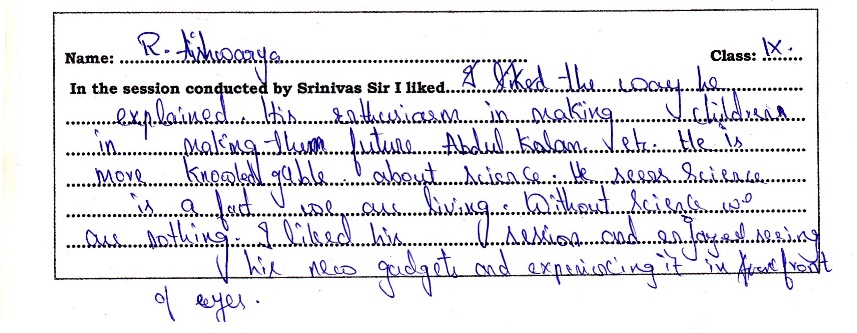 Name: R. Aishwarya Class: IX.
In the session conducted by Srinivas Sir I liked I liked the way he
explained. His enthusiasm in making children
in making them future Abdul Kalam etc. He is
more knowledgable about science. He sees Science
is a fact we are living. Without Science we
are nothing. I liked his session and enjoyed seeing
his new gadgets and experiencing it in front
of eyes.